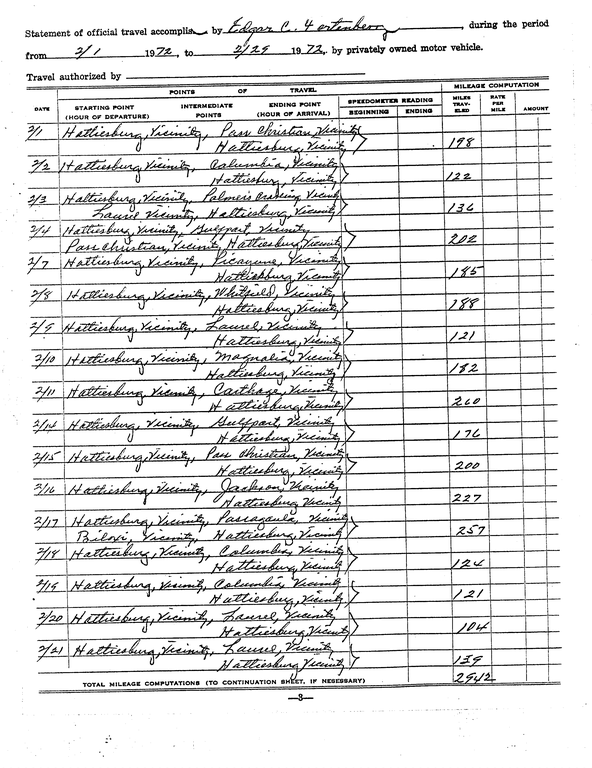 Statement of official travel accomplis by Edgar C. Fortenberry, during the period
from 2/1 1972, to 2/29 1972, by privately owned motor vehicle.
Travel authorized by
POINTS OF TRAVEL MILEAGE COMPUTATION
DATE STARTING POINT (HOUR OF DEPARTURE) INTERMEDIATE POINTS ENDING POINT (HOUR OF ARRIVAL) SPEEDOMETER READING BEGINNING ENDING MILES TRAV- ELED RATE PER MILE AMOUNT
2/1 Hattiesburg, Vicinity, Pass Christian, Vicinity
Hattiesburg, Vicinity 198
2/2 Hattiesburg, Vicinity, Columbia, Vicinity
Hattiesburg, Vicinity 122
2/3 Hattiesburg, Vicinity, Palmers Crossing Vicinity
Laurel Vicinity, Hattiesburg, Vicinity 136
2/4 Hattiesburg, Vicinity, Gulfport, Vicinity
Pass Christian, Vicinity, Hattiesburg, Vicinity 202
2/7 Hattiesburg, Vicinity, Picayune, Vicinity
Hattiesburg, Vicinity 185
2/8 Hattiesburg, Vicinity, Whitfield, Vicinity
Hattiesburg, Vicinity 188
2/9 Hattiesburg, Vicinity, Laurel, Vicinity
Hattiesburg, Vicinity 121
2/10 Hattiesburg, Vicinity, Magnolia, Vicinity
Hattiesburg, Vicinity 182
2/11 Hattiesburg, Vicinity, Carthage, Vicinity
Hattiesburg, Vicinity 260
2/14 Hattiesburg, Vicinity, Gulfport, Vicinity
Hattiesburg, Vicinity 176
2/15 Hattiesburg, Vicinity, Pass Christian, Vicinity
Hattiesburg, Vicinity 200
2/16 Hattiesburg, Vicinity, Jackson, Vicinity
Hattiesburg, Vicinity 227
2/17 Hattiesburg, Vicinity, Pascagoula, Vicinity
Biloxi, Vicinity, Hattiesburg, Vicinity 257
2/18 Hattiesburg, Vicinity, Columbia, Vicinity
Hattiesburg, Vicinity 124
2/19 Hattiesburg, Vicinity, Columbia, Vicinity
Hattiesburg, Vicinity 121
2/20 Hattiesburg, Vicinity, Laurel, Vicinity
Hattiesburg, Vicinity 104
2/21 Hattiesburg, Vicinity, Laurel, Vicinity
Hattiesburg Vicinity 139
TOTAL MILEAGE COMPUTATIONS (TO CONTINUATION SHEET, IF NESESSARY) 2942
—3—